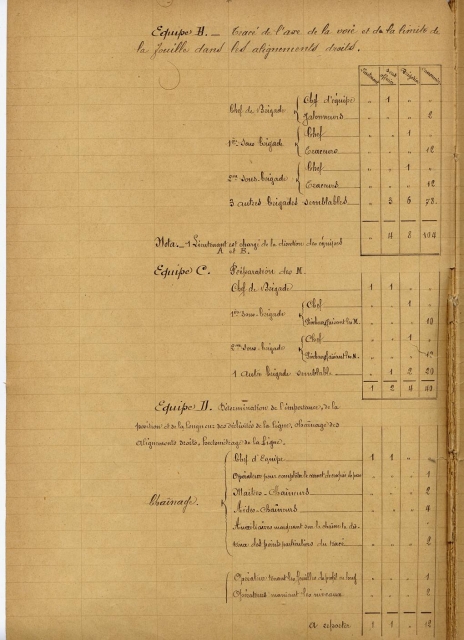 Equipe B. — Tracé de l'axe de la voie et de la limite de
la fouille dans les alignements droits.
Chef de Brigade { Chef d'équipe " 1 " "
Jalonneurs " " " 2
1ère sous brigade { Chef " " 1 "
Traceurs " " " 12
2me sous-brigade { Chef " " 1 "
Traceurs " " " 12
3 autres brigades semblables " 3 6 78
" 4 8 104
Nota. — 1 Lieutenant est chargé de la direction des équipes
A et B.
Equipe C. Préparation des M.
Chef de Brigade 1 1 " "
1ère sous-brigade { Chef " " 1 "
les M. " " " 10
2me sous-brigade { Chef " " 1 "
les M. " " " 10
1 autre brigade semblable " 1 2 20
1 2 4 40
Equipe D. Détermination de l'importance, de la
position et de la longueur des déclivités de la ligne, chaînage des
alignements droits, hectométrage de la Ligne.
Chaînage. { Chef d'Equipe 1 1 " "
Opérateur pour compléter le carnet 1
Maîtres-Chaîneurs " " " 2
Aides-Chaîneurs " " " 4
Auxiliaires marquant sur le chaîne la dis-
tance des points particuliers du tracé " " " 2
Opérateur tenant les feuilles du profil en long " " " 1
Opérateurs maniant les niveaux " " " 2
A reporter 1 1 " 12